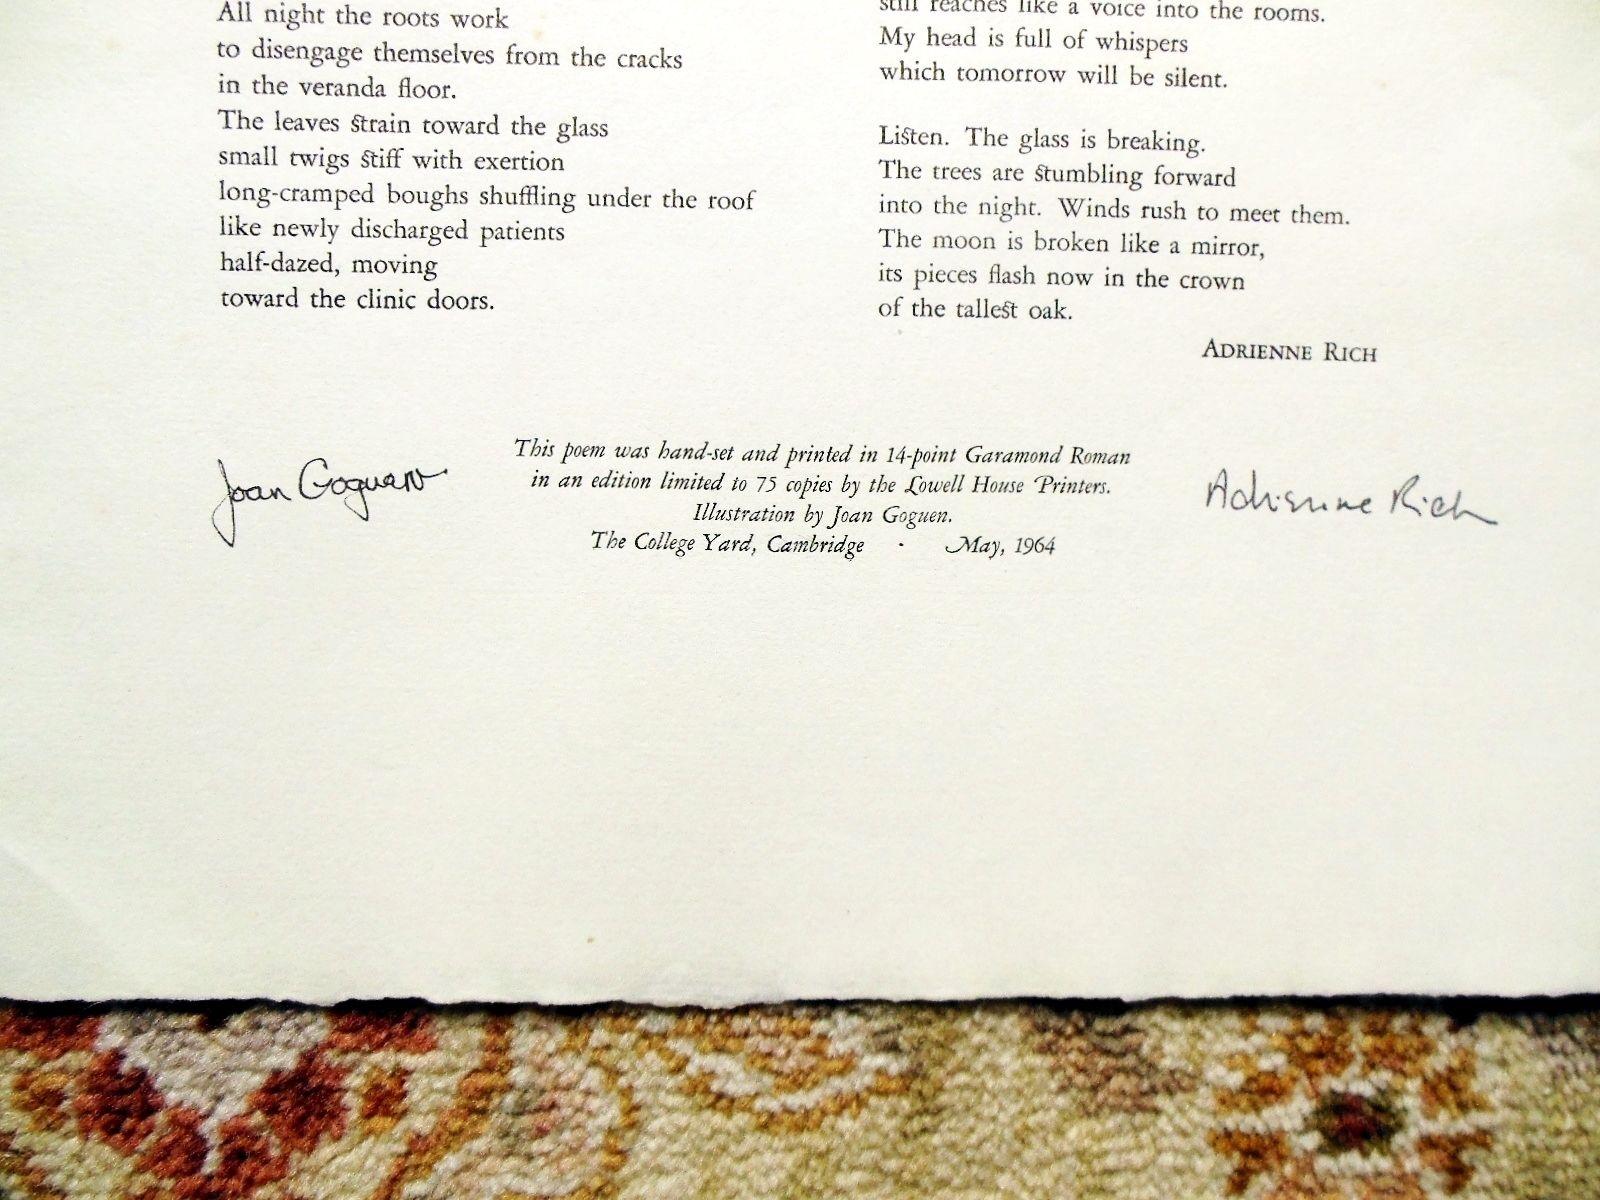 All night the roots work
to disengage themselves from the cracks
in the veranda floor.
The leaves strain toward the glass
small twigs stiff with exertion
long-cramped boughs shuffling under the roof
like newly discharged patients
half-dazed, moving
toward the clinic doors.
still reaches like a voice into the rooms.
My head is full of whispers
which tomorrow will be silent.
Listen. The glass is breaking.
The trees are stumbling forward
into the night. Winds rush to meet them.
The moon is broken like a mirror,
its pieces flash now in the crown
of the tallest oak.
ADRIENNE RICH
Joan Goguen
This poem was hand-set and printed in 14-point Garamond Roman
in an edition limited to 75 copies by the Lowell House Printers.
Illustration by Joan Goguen.
The College Yard, Cambridge · May, 1964
Adrienne Rich